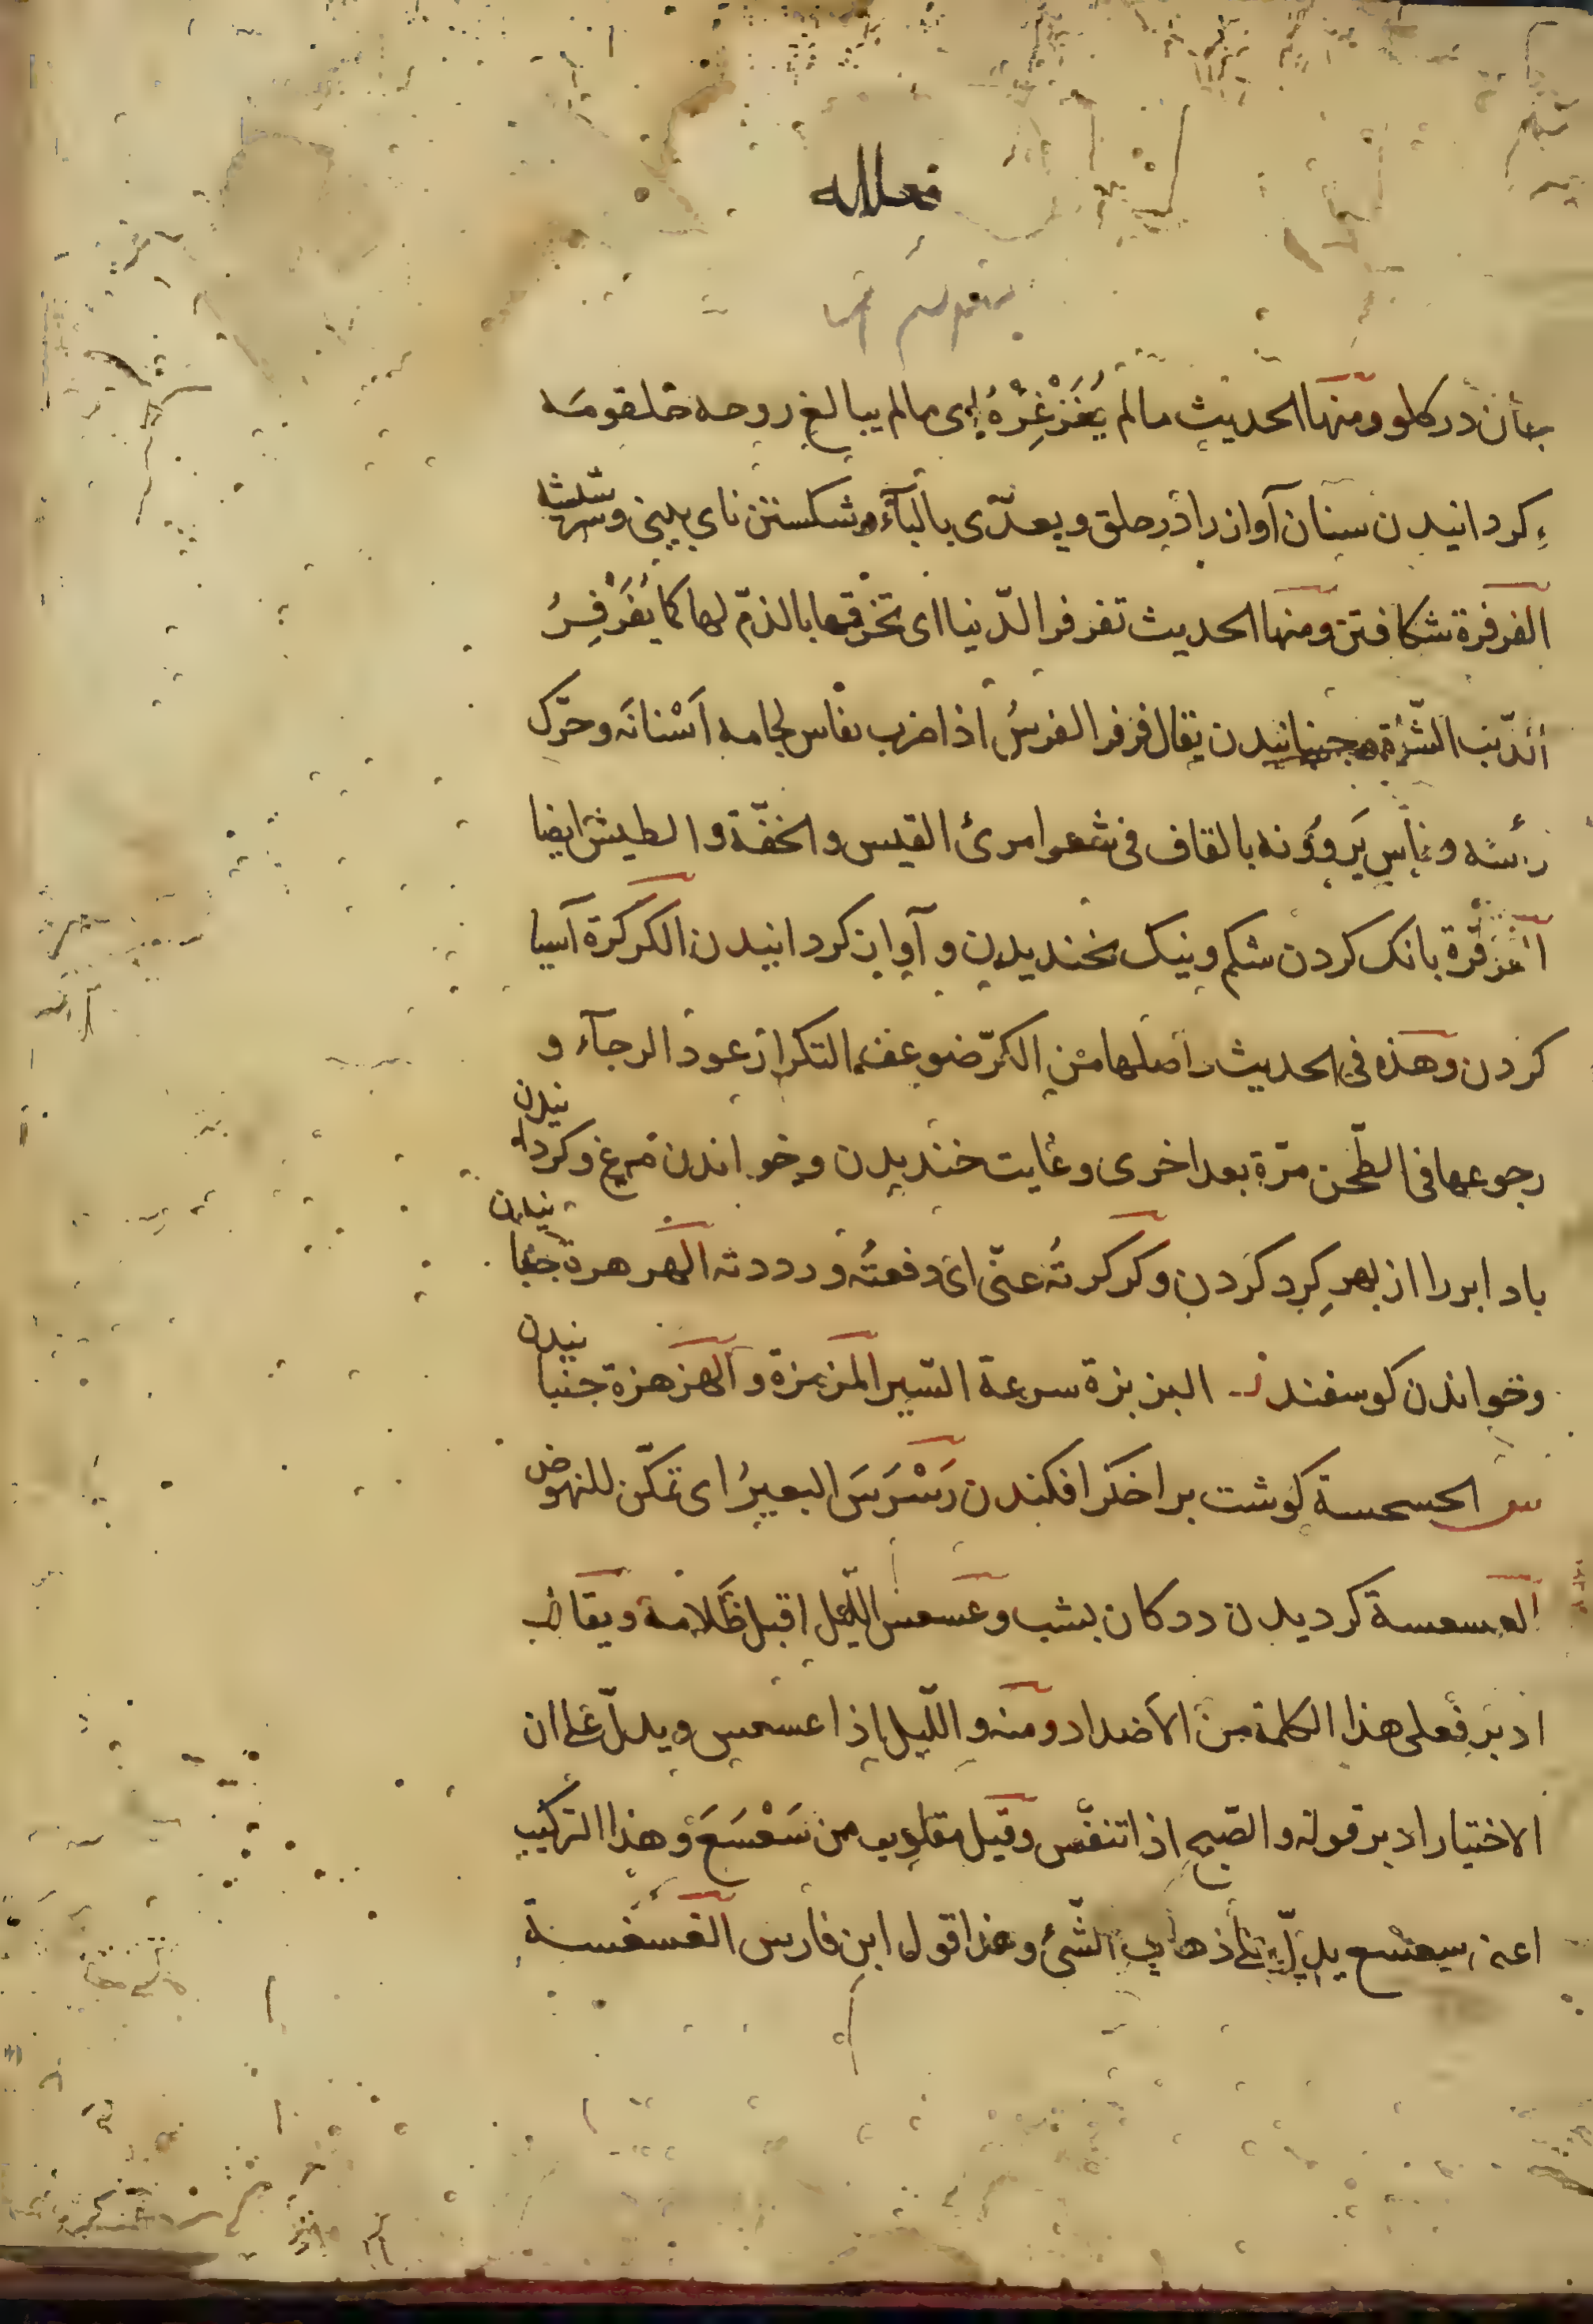 جان در كلو ومنها الحديث مالم يُغَرْغِرْهُ اى مالم يبالغ روحه حلقومه
كردانيدن سنان آواز را در حلق ويعدّى بالبآء وشكستن ناى بينى وسر شيشه
الفرفرة شكافتن ومنها الحديث تفرفر الدّنيا اى تخرقها بالذمّ لها كما يُفَرْفِرُ
الذّئب الشّاة وجنبانيدن يقال فرفر الفرسُ اذا ضرب بفاس لجامه اَسْنانَه وحرّك
رأسه وناس يَروُونه بالقاف فى شعر امرئ القيس والخفّة والطيش ايضا
القرقرة بانك كردن شكم ونيك بخنديدن وآواز كردانيدن الكركرة آسيا
كردن وهذه فى الحديث اصلها من الكرّ ضوعف التكرار عود الرجآء و
رجوعها فى الطّحن مرّة بعد اخرى وغايت خنديدن وخواندن مرغ وكردانيدن
باد ابر را از بهر كِرد كردن وكركرتُه عنّى اى دفعتُه ورددته الهرهرة جنبانيدن
وخواندن كوسفند ز البزبزة سرعة السّير المزمزة والهزهزة جنبانيدن
س الحسحسة كوشت بر اخكر افكندن رَسْرَسَ البعيرُ اى تمكّن للنهوض
العسعسة كرديدن ددكان بشب وعَسعس اللّيل اقبل ظَلامه ويقال
ادبر فعلى هذا الكلمة من الأضداد ومنه واللّيل إذا عسعس ويدلّ على ان
الاختيار ادبر قوله والصّبح اذا تنفّس وقيل مقلوب من سَعْسَعَ وهذا التركيب
اعنى سعسع يدلّ على ذهاب الشّئ وهذا قول ابن فارس الفسفسة